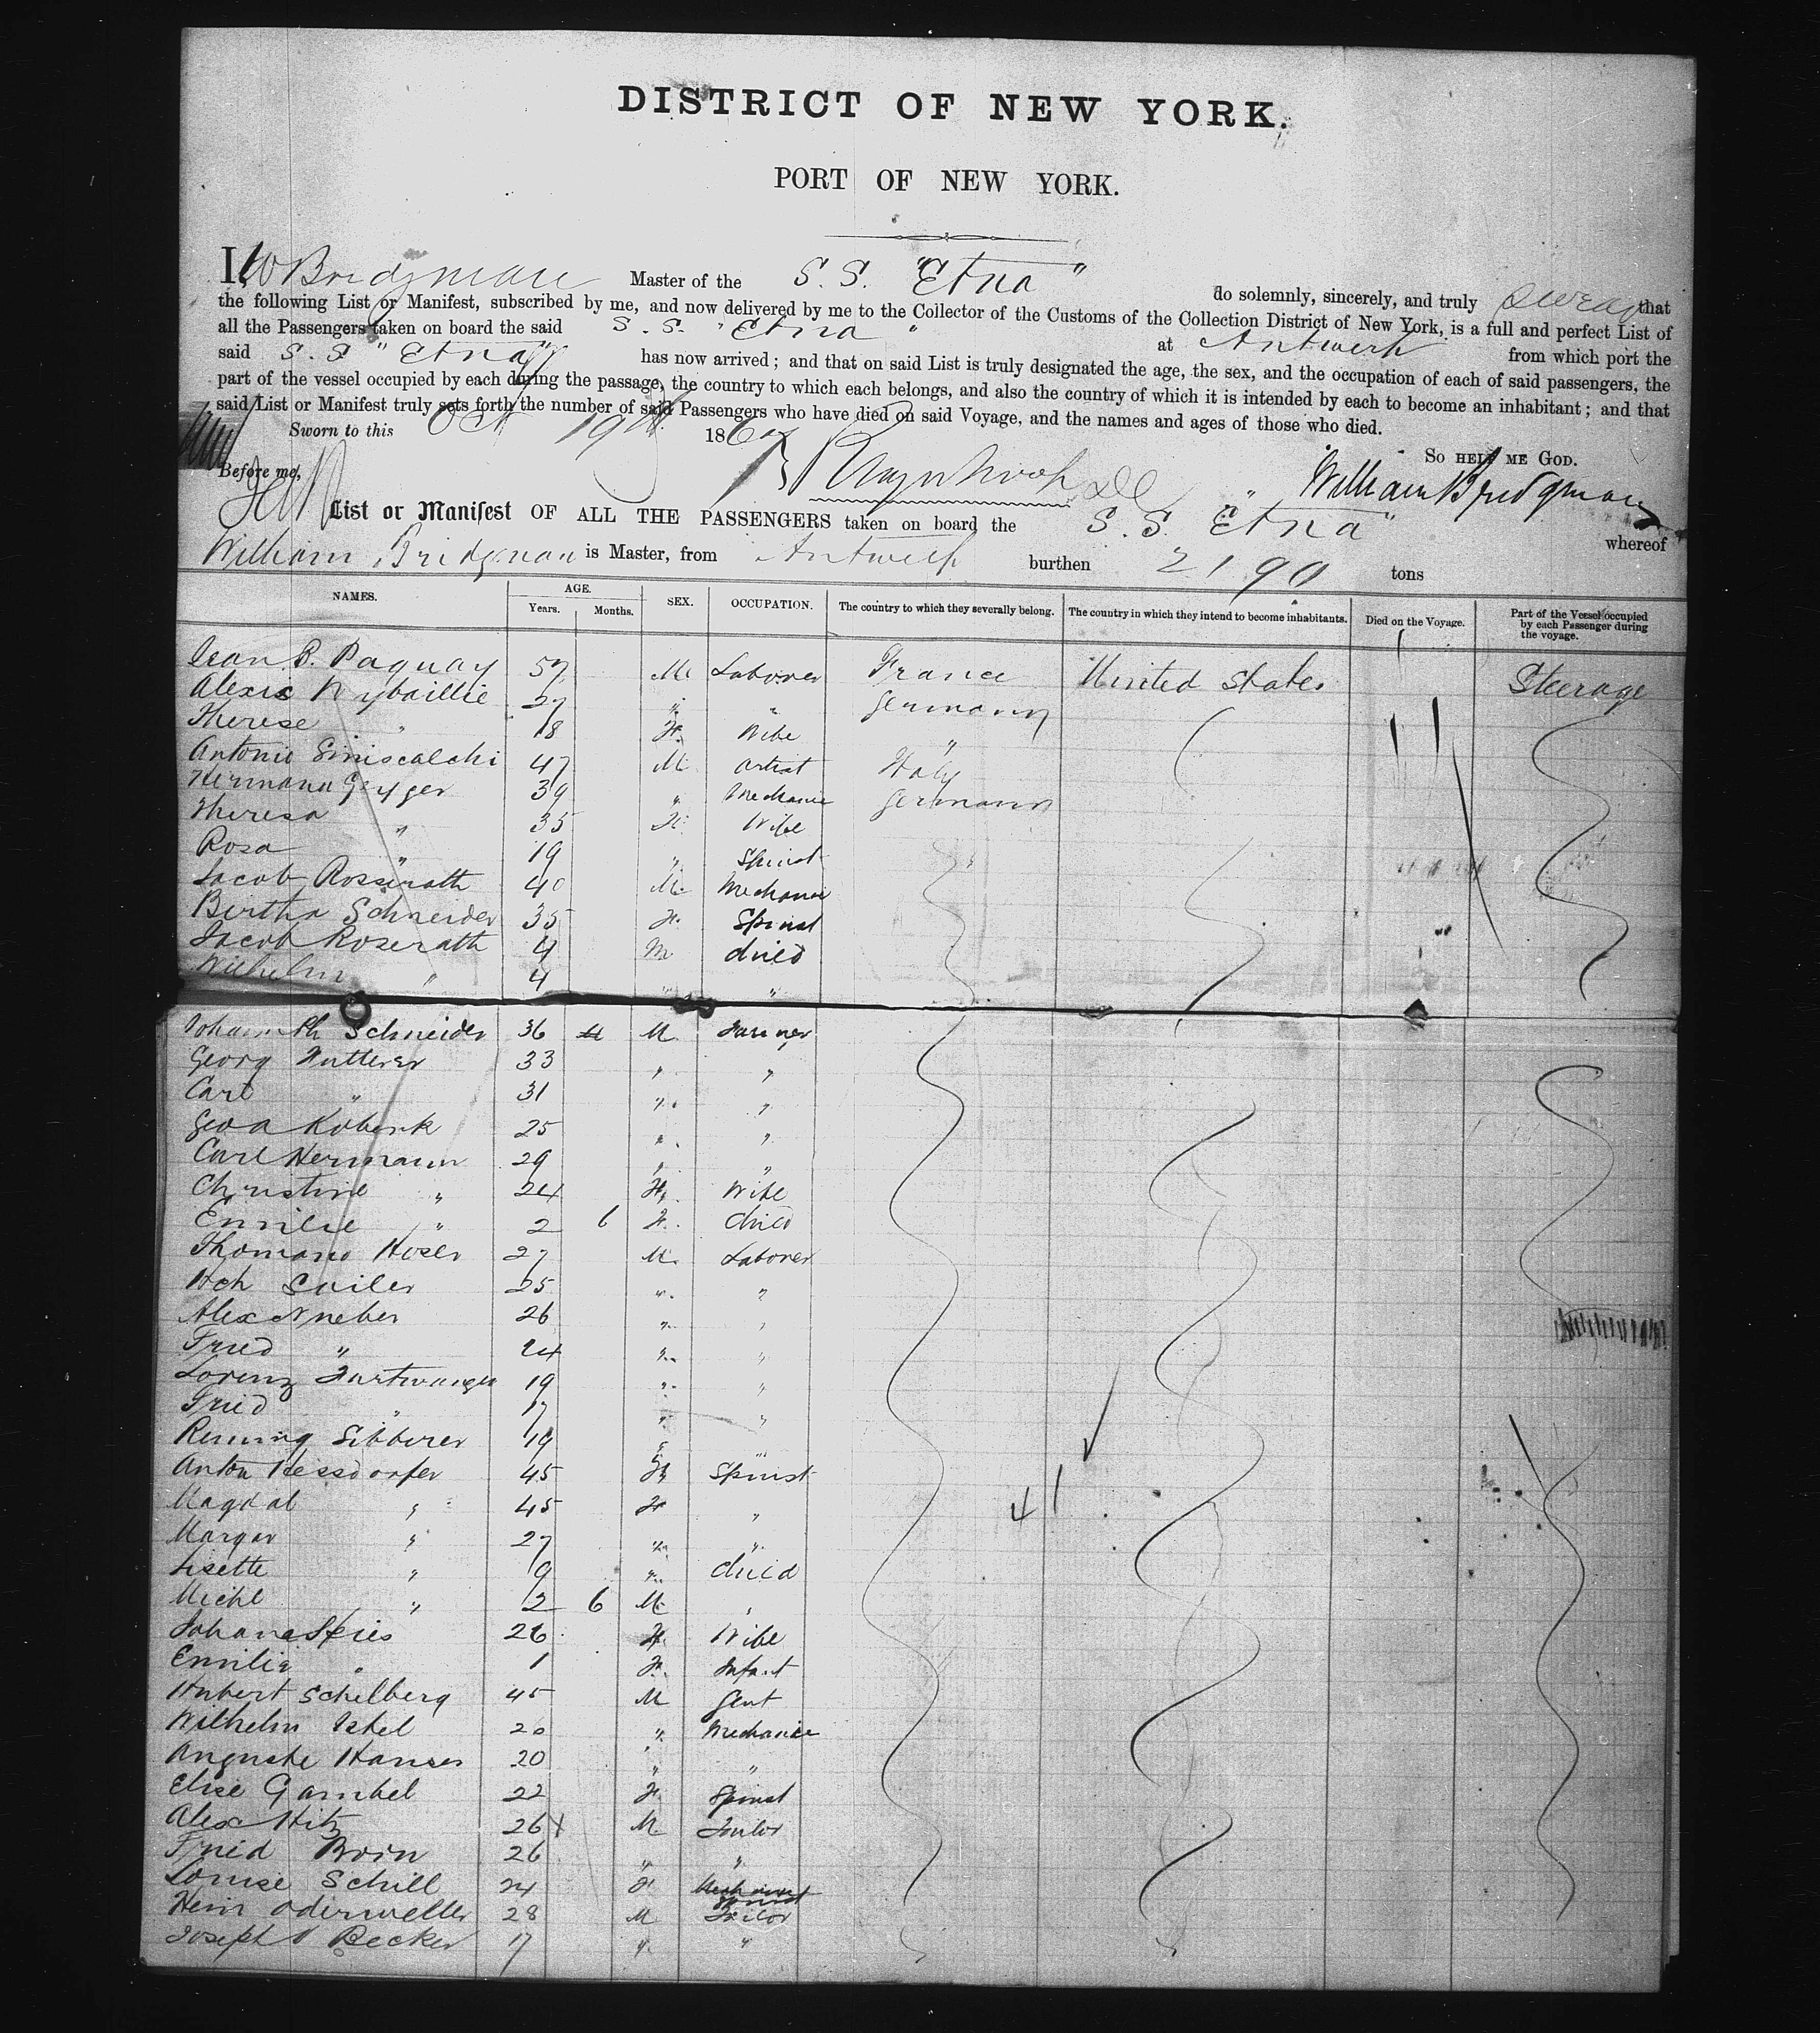 DISTRICT OF NEW YORK.
PORT OF NEW YORK.
I, W Bridgman Master of the S. S. "Etna" do solemnly, sincerely, and truly swear that
the following List or Manifest, subscribed by me, and now delivered by me to the Collector of the Customs of the Collection District of New York, is a full and perfect List of
all the Passengers taken on board the said S. S. "Etna" at Antwerp from which port the
said S. S "Etna" has now arrived; and that on said List is truly designated the age, the sex, and the occupation of each of said passengers, the
part of the vessel occupied by each during the passage, the country to which each belongs, and also the country of which it is intended by each to become an inhabitant; and that
said List or Manifest truly sets forth the number of said Passengers who have died on said Voyage, and the names and ages of those who died.
Sworn to this Oct 19th 186
So HELP ME GOD.
Before me, William Bridgman
List or Manifest OF ALL THE PASSENGERS taken on board the S. S. "Etna" whereof
William Bridgman is Master, from Antwerp burthen 2190 tons
NAMES. AGE. Years. Months. SEX. OCCUPATION. The country to which they severally belong. The country in which they intend to become inhabitants. Died on the Voyage. Part of the Vessel occupied by each Passenger during the voyage.
Jean B. Paquay 57 M. Laborer France United States Steerage
Alexis 27 " " Germany
Therese " 18 F. Wife "
Antonio Siniscalchi 47 M. Artist Italy
Hermann Geyger 39 " Mechanic Germany
Theresa " 35 F. Wife
Rosa " 19 " Spinst
Jacob Rosserath 40 M. Mechanic
Bertha Schneider 35 F. Spinst
Jacob Roserath 4 M child
Wilhelm " 4 " "
Schneider 36 M. Farmer
Georg Futterer 33 " "
Carl " 31 " "
25 " "
Carl Hermann 29 " "
Christine " 24 F. Wife
Emilie " 2 6 F. Child
Hoser 27 M. Laborer
Hch Sailer 25 " "
Alex 26 " "
Fried " 24 " "
Lorenz Furtwanger 19 " "
Fried " 17 " "
19 " "
Anton Kessdorfer 45 Spinst
Magdal " 45 F "
Margar " 27 " "
Lisette " 9 " Child
Michl " 2 6 M "
26 F. Wife
Emilie " 1 F. Infant
Hubert Schelberg 45 M Gent
Wilhelm 20 " Mechanic
Auguste Hanser 20 " "
Elise Gambel 22 F. Spinst
Alex Hitz 26 M Tailor
Fried Born 26 " "
Louise Schill 24 F
Heinr Oderweller 28 M Tailor
Joseph Becker 17 " "